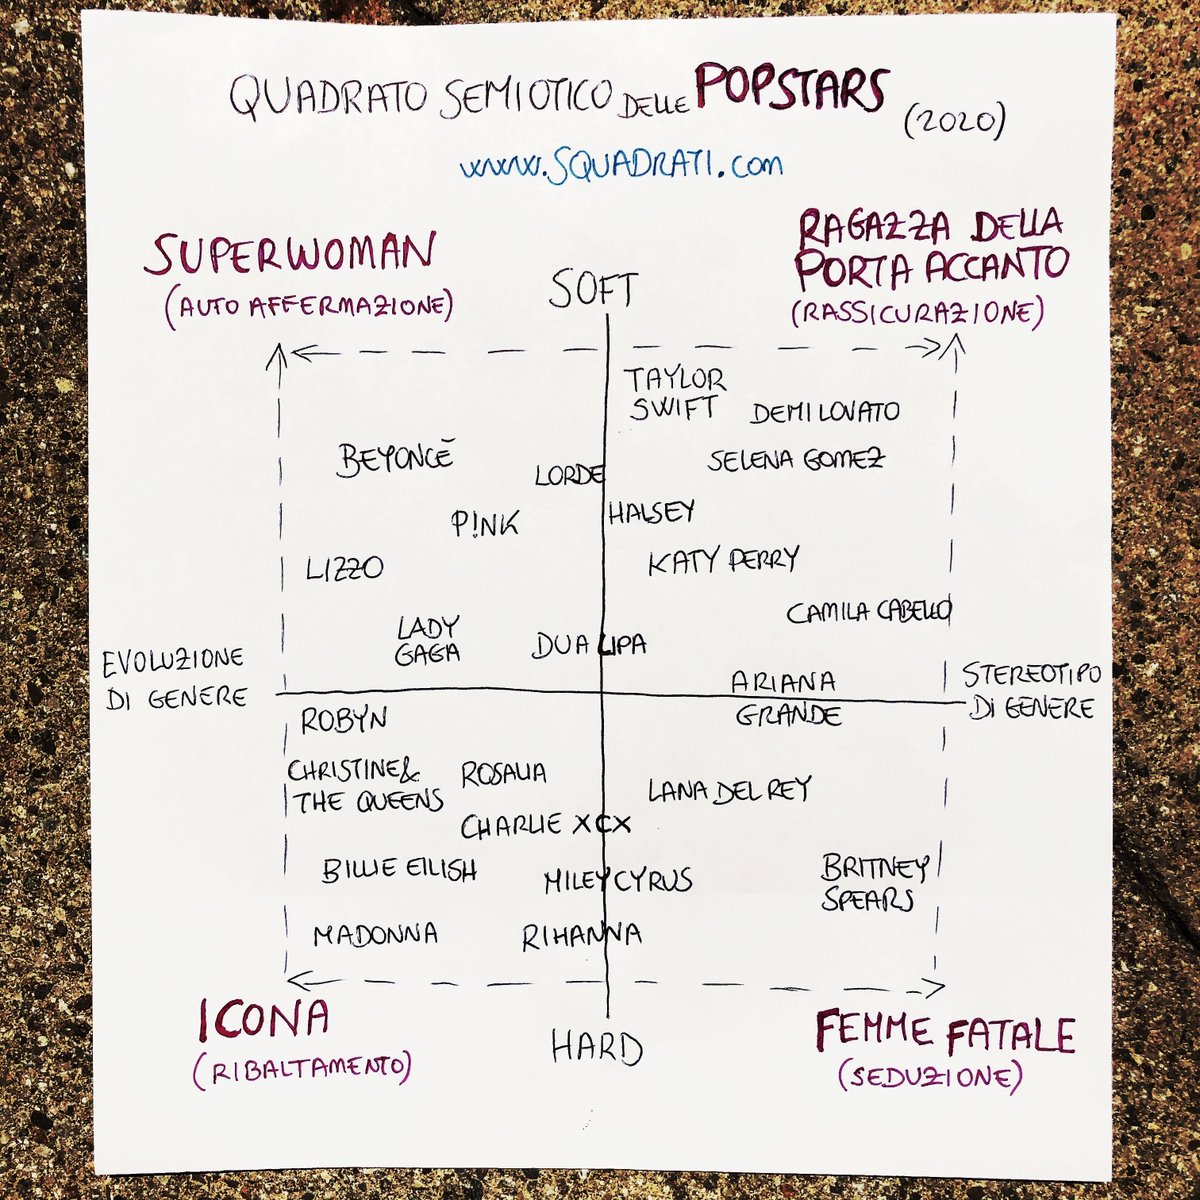 QUADRATO SEMIOTICO DELLE POPSTARS (2020)
www.SQUADRATI.com
SUPERWOMAN
(AUTO AFFERMAZIONE)
SOFT
RAGAZZA DELLA
PORTA ACCANTO
(RASSICURAZIONE)
TAYLOR
SWIFT
DEMI LOVATO
BEYONCÈ
LORDE
SELENA GOMEZ
P!NK
HALSEY
LIZZO
KATY PERRY
CAMILA CABELLO
LADY
GAGA
DUA LIPA
EVOLUZIONE
DI GENERE
ARIANA
GRANDE
STEREOTIPO
DI GENERE
ROBYN
CHRISTINE&
THE QUEENS
ROSALIA
LANA DEL REY
CHARLIE XCX
BILLIE EILISH
MILEY CYRUS
BRITNEY
SPEARS
MADONNA
RIHANNA
ICONA
(RIBALTAMENTO)
HARD
FEMME FATALE
(SEDUZIONE)